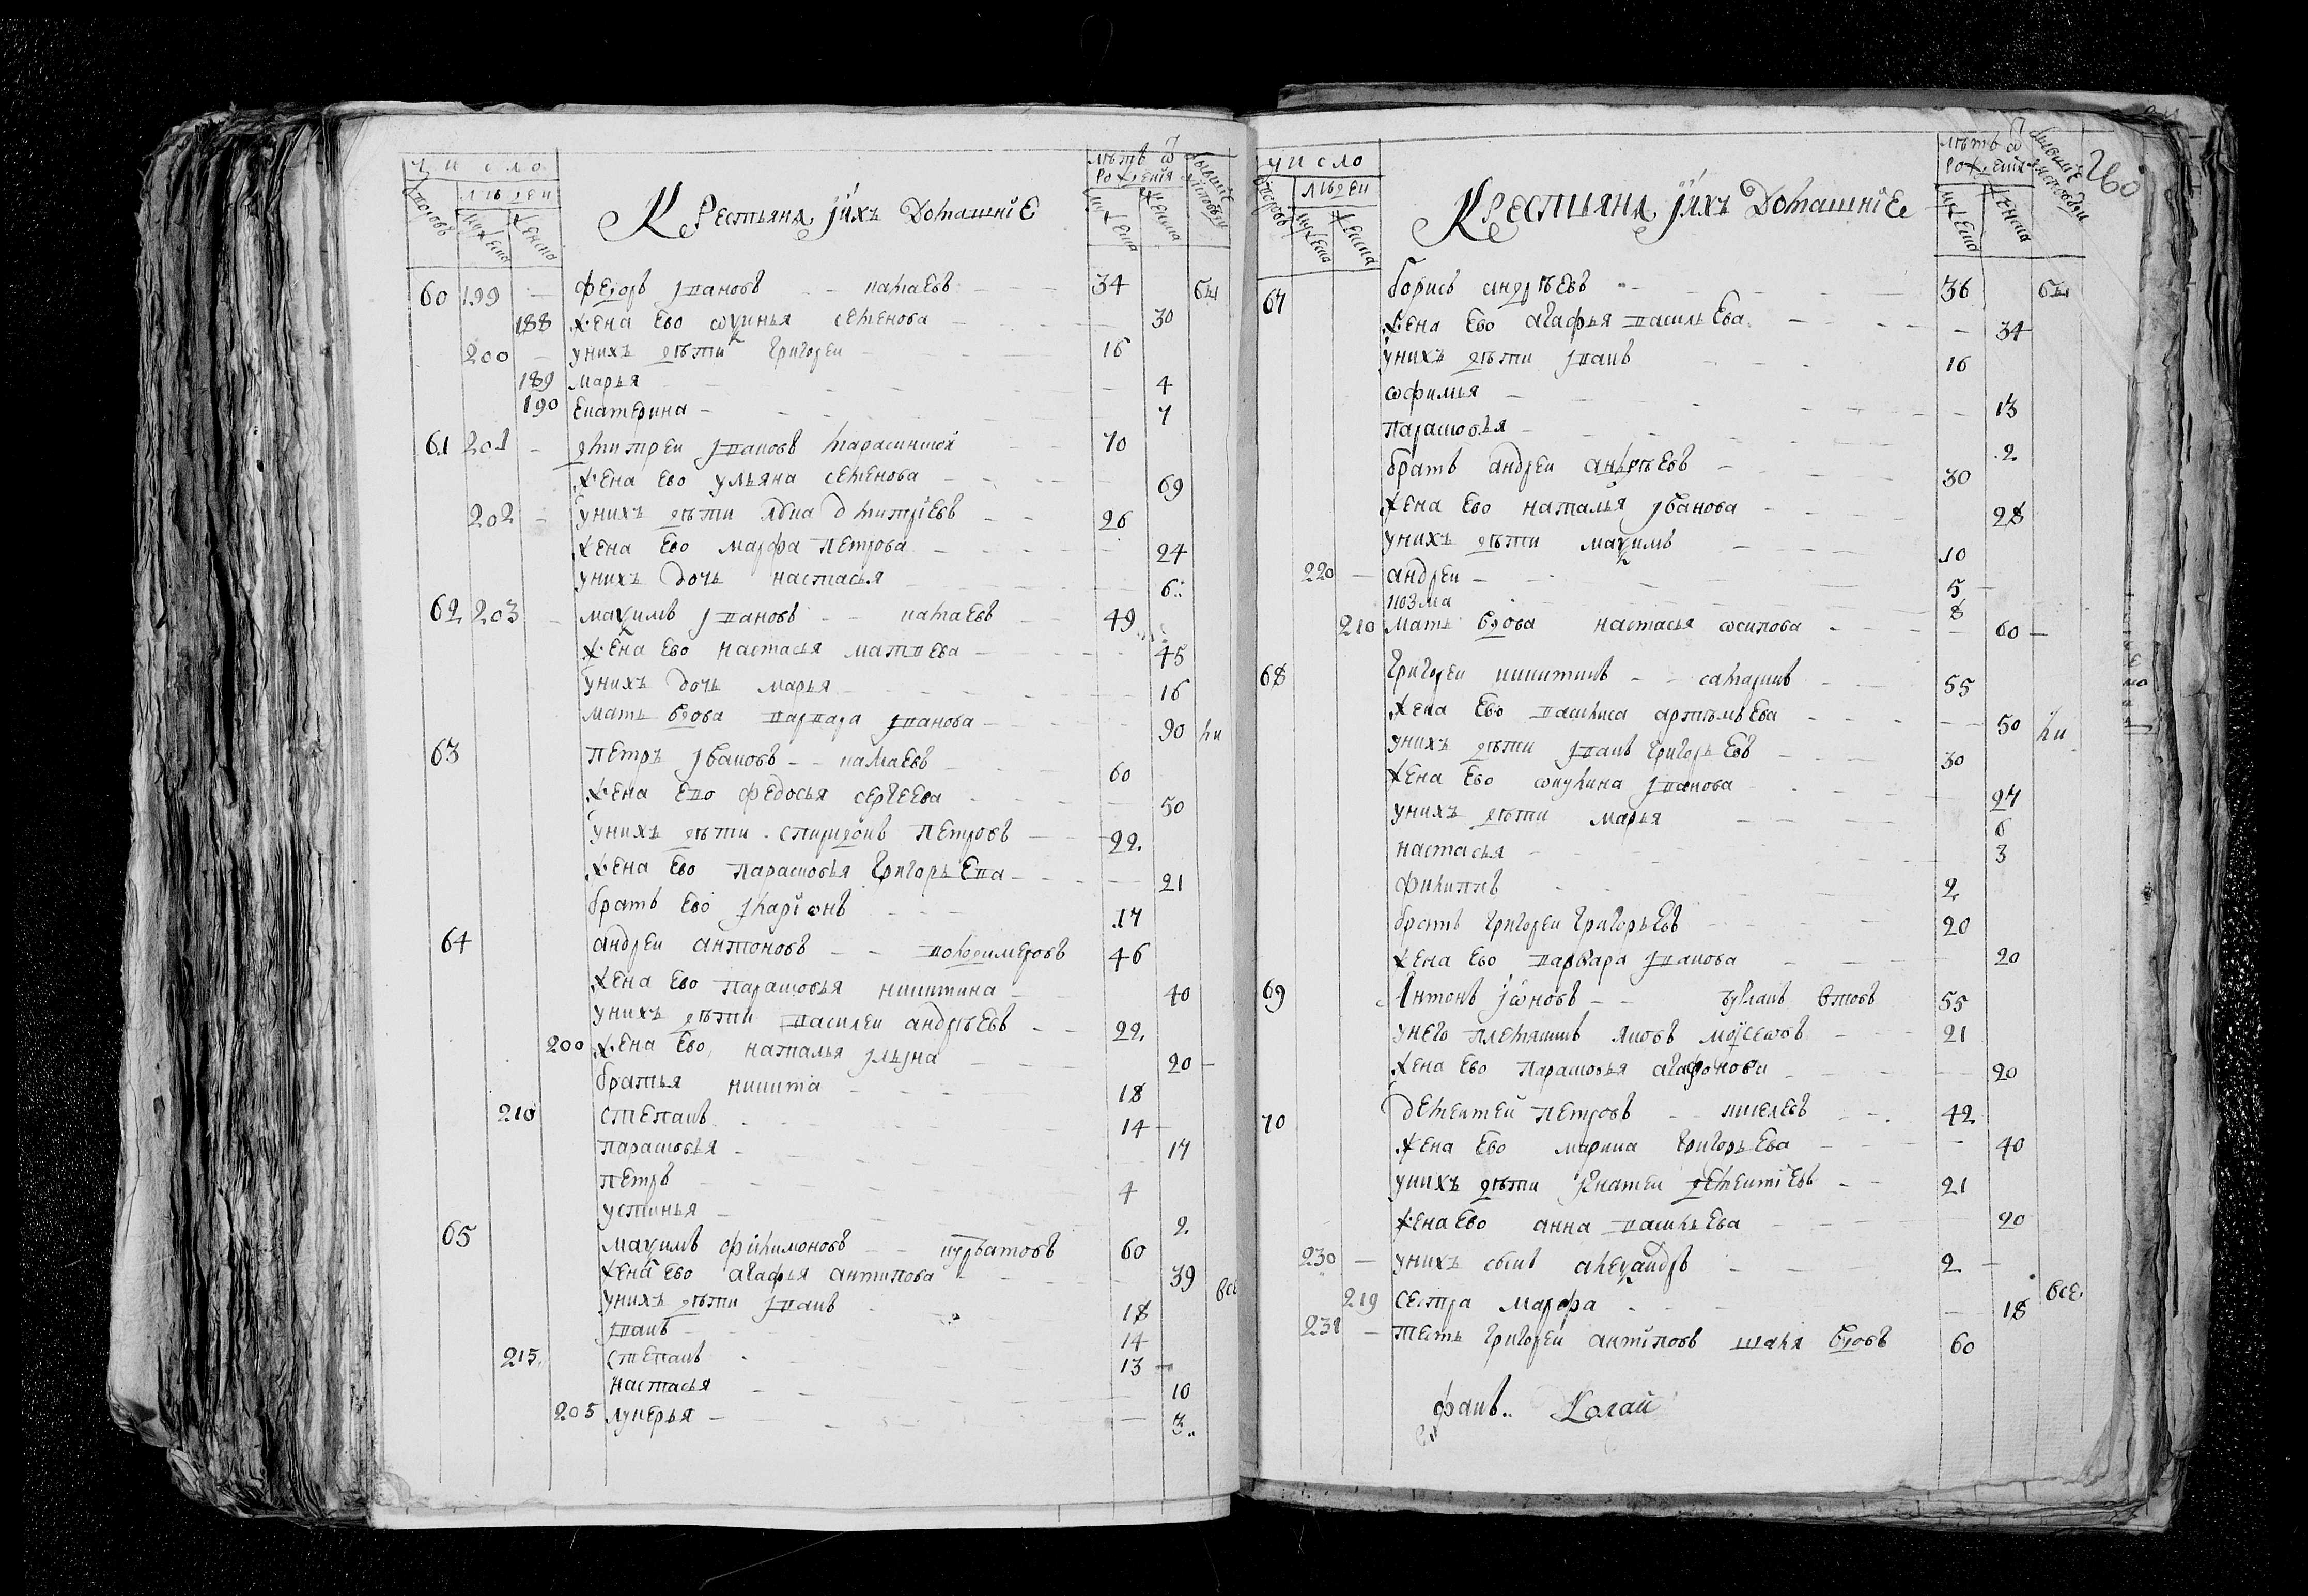 число
дворовъ людеи
мужеска женска
Крестьяня ј ихъ Домашніе
лѣтъ ѿ рожденія
мужеска женска
бывшіе у исповѣди
60 199 — Федоръ јвановъ — камаевъ 34 бы
188 жена ево оѯинья семенова 30
200 — унихъ дѣти григореи 16
189 марья 4
190 екатерина 7
61 201 — дмитреи јвановъ тарасинской 70
жена ево ульяна семенова 69
202 — унихъ дѣти дмитріевъ 26
жена ево марфа петрова 24
унихъ дочь настасья 6
62 203 — маѯимъ јвановъ — камаевъ 49
жена ево настасья матвева 45
унихъ дочь марья 16
мать вдова варвара јванова 90 ли
63 петръ јвановъ — камаевъ 60
жена ево федосья сергеева 50
унихъ дѣти спиридонъ петровъ 22.
жена ево парасковья григорьева 21
братъ ево јларіѡнъ 17
64 андреи антоновъ — володимеровъ 46
жена ево парасковья никитина 40
унихъ дѣти василеи андрѣевъ 22.
200 жена ево наталья јльјна 20 —
братья никита 18
210 степанъ 14 —
парасковья 17
петръ 4
устинья 2.
65 маѯимъ филимоновъ — курбатовъ 60
жена ево агафья антипова 39 все
унихъ дѣти јванъ 18
јванъ 14
215 степанъ 13 —
настасья 10
205 лукерья 3
260
число
дворовъ людеи
мужеска женска
Крестьяня ј ихъ Домашніе
лѣтъ ѿ рожденія
мужеска женска
бывшіе у исповѣди
67 борисъ андрѣевъ 36 бы
жена ево агафья васильева 34
унихъ дѣти јванъ 16
ѡфимья 13
парасковья 2
братъ андреи андрѣевъ 30
жена ево наталья јванова 28
унихъ дѣти маѯимъ 10
220 — андреи 5 —
козма 8
210 мать вдова настасья ѡсипова 60 —
68 григореи никитинъ — самаринъ 55
жена ево васлиса артѣмьева 50 ли
унихъ дѣти јванъ григорьевъ 30
жена ево ѡкулина јванова 27
унихъ дѣти марья 6
настасья 3
филиппъ 2
братъ григореи григорьевъ 20
жена ево варвара јванова 20
69 Антонъ јѡновъ — вдовъ 55
унего племянникъ яковъ моѵсеѡвъ 21
жена ево парасковья агафонова 20
70 дементей петровъ — киселевъ 42
жена ево марина григорьева 40
унихъ дѣти јгнатеи дементіевъ 21
жена ево анна васильева 20
230 — унихъ сынъ алеѯандръ 2 —
219 сестра марфа 18 все
231 — тесть григореи антіповъ вдовъ 60